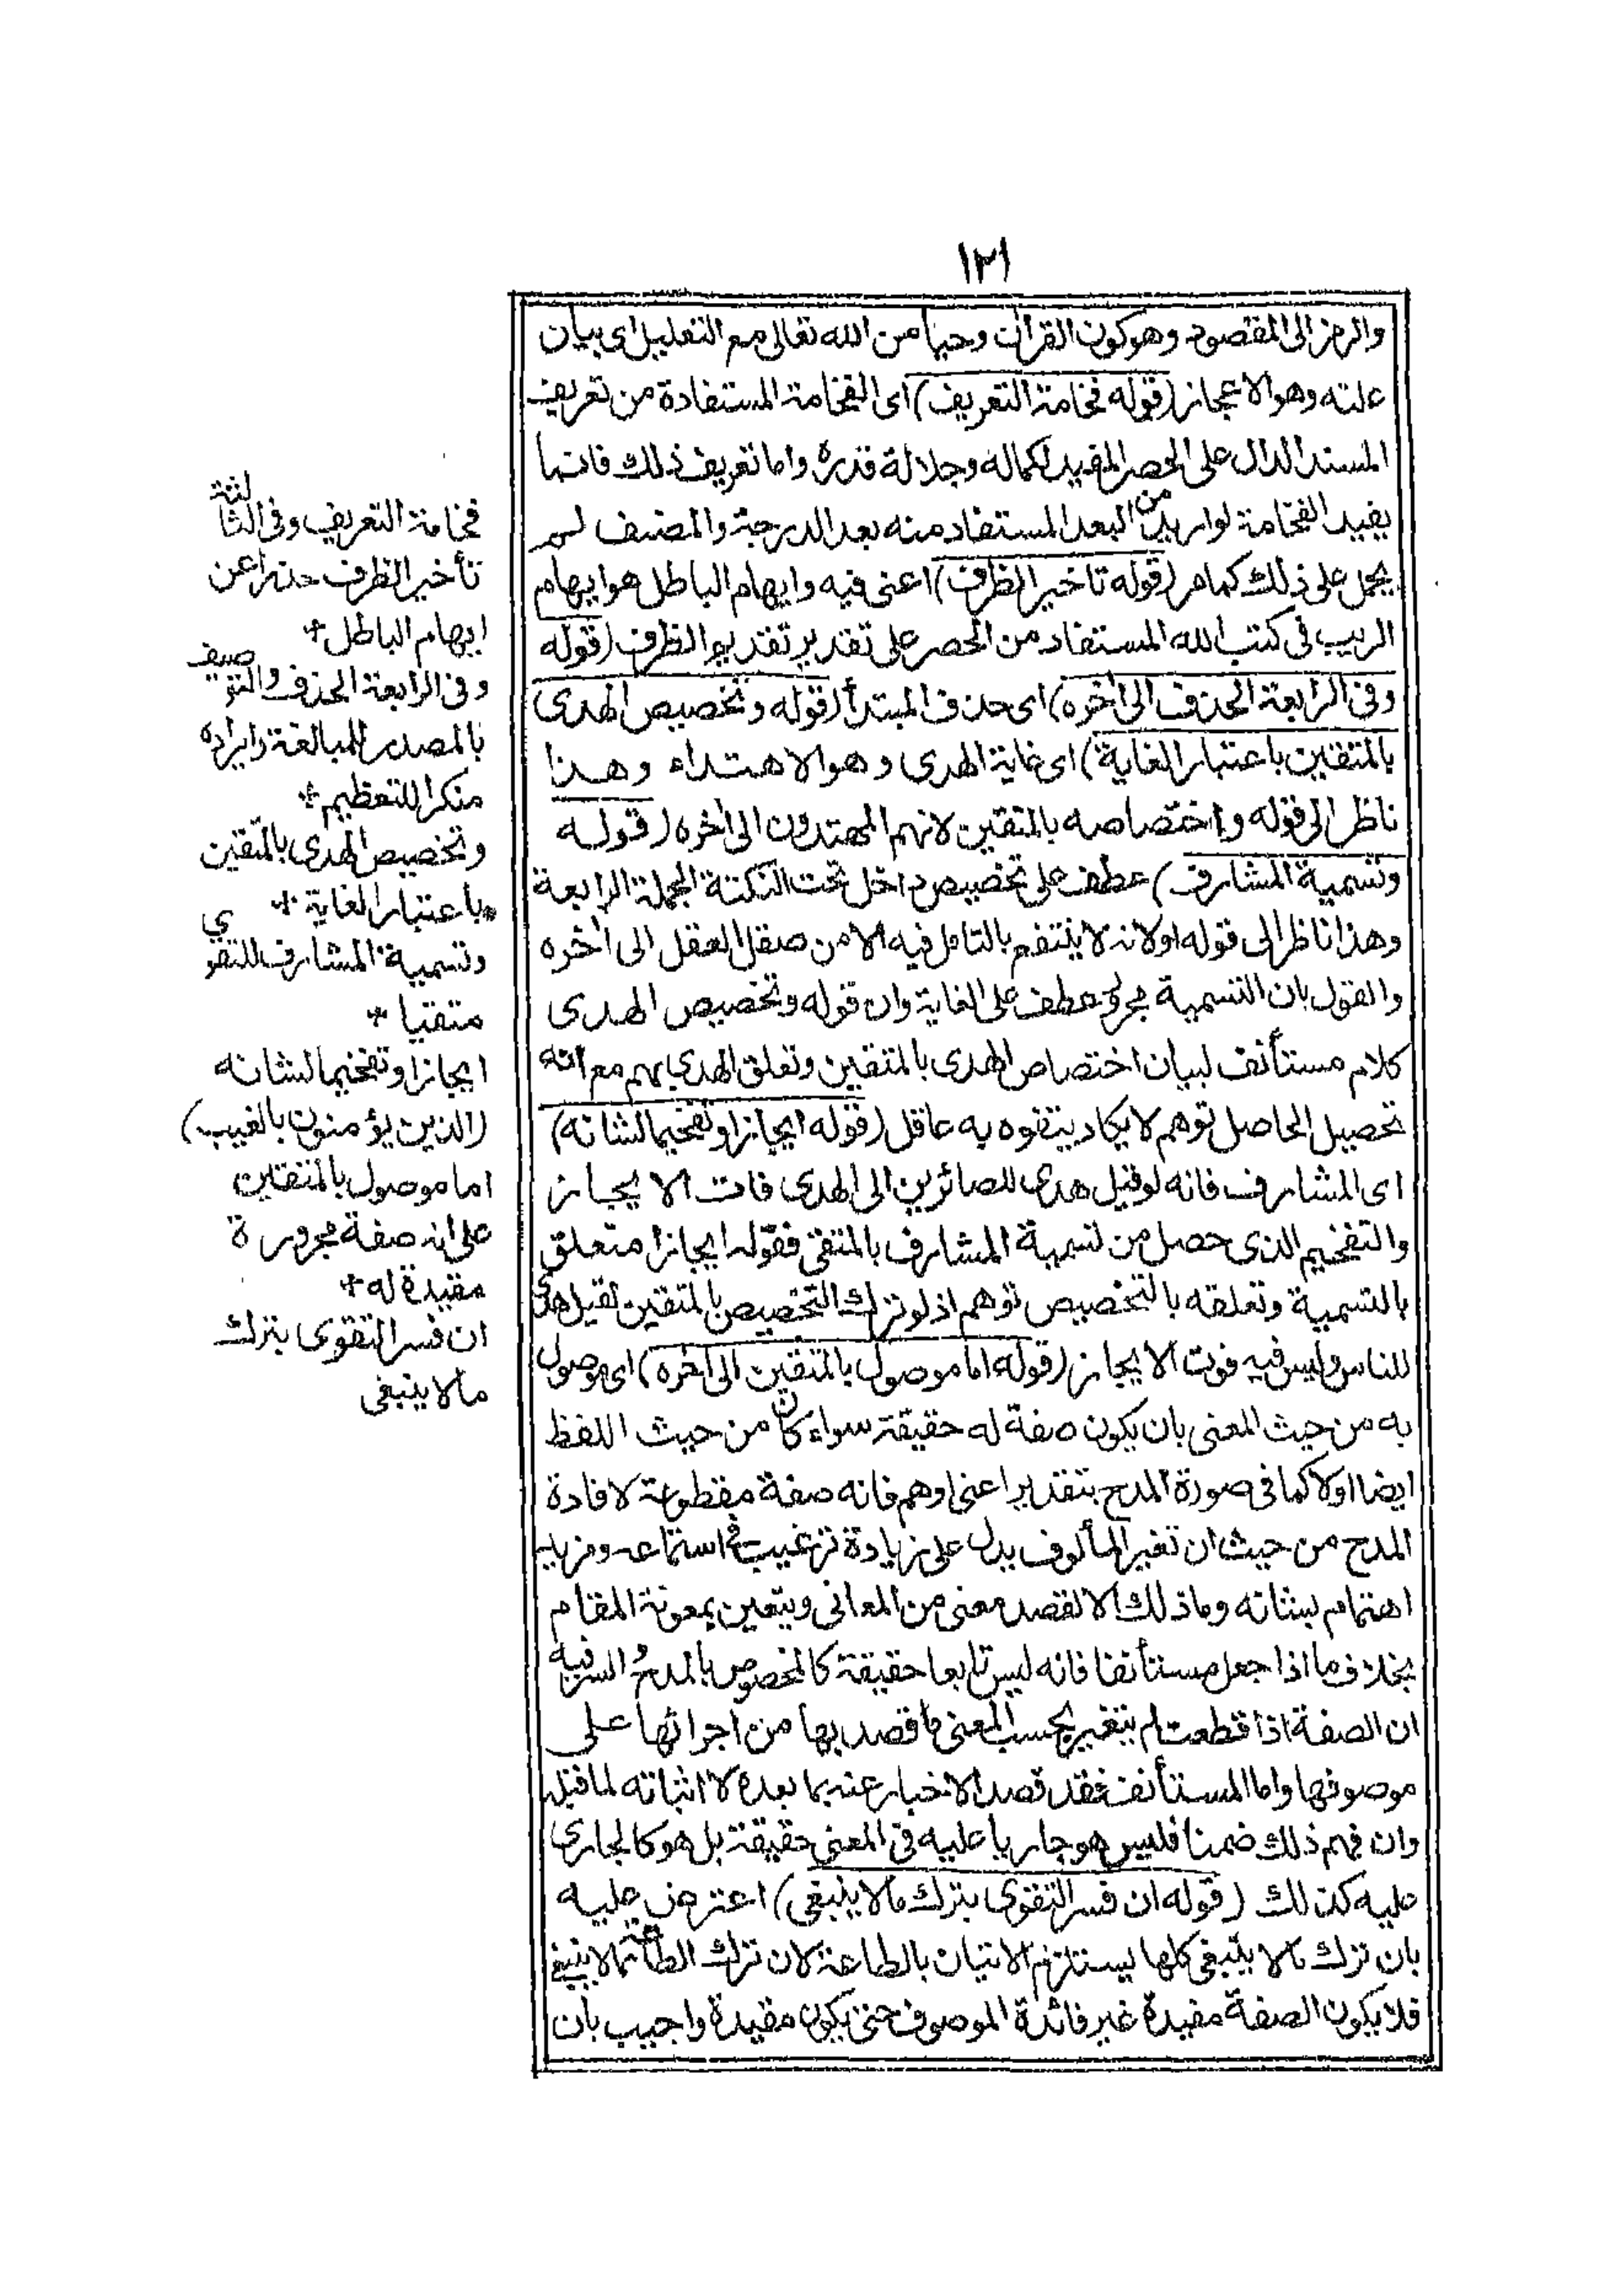 ١٢١
والرمز الى المقصود وهو كون القرآن وحيا من الله تعالى مع التعليل اى بيان
علته وهو الاعجاز (قوله فخامة التعريف) اى الفخامة المستفادة من تعريف
المسند الدال على الحصر المفيد لكماله وجلالة قدره واما تعريف ذلك فانما
يفيد الفخامة لو اريد من البعد المستفاد منه بعد الدرجة والمصنف لم
يحمل على ذلك كما مر (قوله تاخير الظرف) اعنى فيه وايهام الباطل هو ايهام
الريب فى كتب الله المستفاد من الحصر على تقدير تقديم الظرف (قوله
وفى الرابعة الحذف الى اخره) اى حذف المبتدأ (قوله وتخصيص الهدى
بالمتقين باعتبار الغاية) اى غاية الهدى وهو الاهتداء وهذا
ناظر الى قوله واختصاصه بالمتقين لانهم المهتدون الى اخره (قوله
وتسمية المشارف) عطف على تخصيص داخل تحت النكتة الجملة الرابعة
وهذا ناظر الى قوله اولانه لا ينتفع بالتامل فيه الا من صقل العقل الى اخره
والقول بان التسمية مجرور عطف على الغاية وان قوله وتخصيص الهدى
كلام مستأنف لبيان اختصاص الهدى بالمتقين وتعلق الهدى بهم مع انه
تحصيل الحاصل توهم لا يكاد يتفوه به عاقل (قوله ايجازا وتفخيما لشانه)
اى المشارف فانه لو قيل هدى للصائرين الى الهدى فات الايجاز
والتفخيم الذى حصل من تسمية المشارف بالمتقى فقوله ايجازا متعلق
بالتسمية وتعلقه بالتخصيص توهم اذ لو ترك التخصيص بالمتقين لقيل هدى
للناس وليس فيه فوت الايجاز (قوله اما موصول بالمتقين الى اخره) اى موصول
به من حيث المعنى بان يكون صفة له حقيقة سواء كان من حيث اللفظ
ايضا اولا كما فى صورة المدح بتقدير اعنى اوهم فانه صفة مقطوعة لافادة
المدح من حيث ان تغير المألوف يدل على زيادة ترغيب فى استماعه ومزيد
اهتمام بشانه وما ذلك الا لقصد معنى من المعانى ويتعين بمعونة المقام
بخلاف ما اذا جعل مستأنفا فانه ليس تابعا حقيقة كالمخصوص بالمدح السر فيه
ان الصفة اذا قطعت لم يتغير بحسب المعنى ما قصد بها من اجرائها على
موصوفها واما المستأنف فقد قصد الاخبار عنه بما بعده لا اثباته لما قبله
وان فهم ذلك ضمنا فليس هو جاريا عليه فى المعنى حقيقة بل هو كالجارى
عليه كذلك (قوله ان فسر التقوى بترك ما لا ينبغى) اعترض عليه
بان ترك ما لا ينبغى كلها يستلزم الاتيان بالطاعة لان ترك الطاعة مما لا ينبغى
فلا يكون الصفة مفيدة غير فائدة الموصوف حتى يكون مقيدة واجيب بان
فخامة التعريف وفى الثالثة
تأخير الظرف حذرا عن
ايهام الباطل +
وفى الرابعة الحذف والتوصيف
بالمصدر للمبالغة وايراده
منكرا للتعظيم +
وتخصيص الهدى بالمتقين
باعتبار الغاية +
وتسمية المشارف للتقوى
متقيا +
ايجازا وتفخيما لشانه
(الذين يؤمنون بالغيب)
اما موصول بالمتقين
على انه صفة مجرورة
مقيدة له +
ان فسر التقوى بترك
ما لا ينبغى